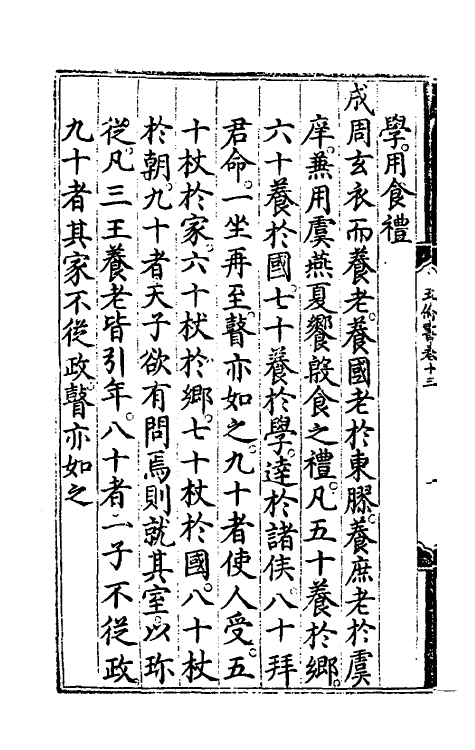 學。用食禮
成周玄衣而養老。養國老於東膠。養庶老於虞
庠。兼用虞燕夏饗殷食之禮。凡五十養於鄉。
六十養於國。七十養於學。達於諸侯。八十拜
君命。一坐再至。瞽亦如之。九十者使人受。五
十杖於家。六十杖於鄉。七十杖於國。八十杖
於朝。九十者天子欲有問焉則就其室。以珎
從。凡三王養老皆引年。八十者一子不從政。
九十者其家不從政。瞽亦如之
卷十三
一